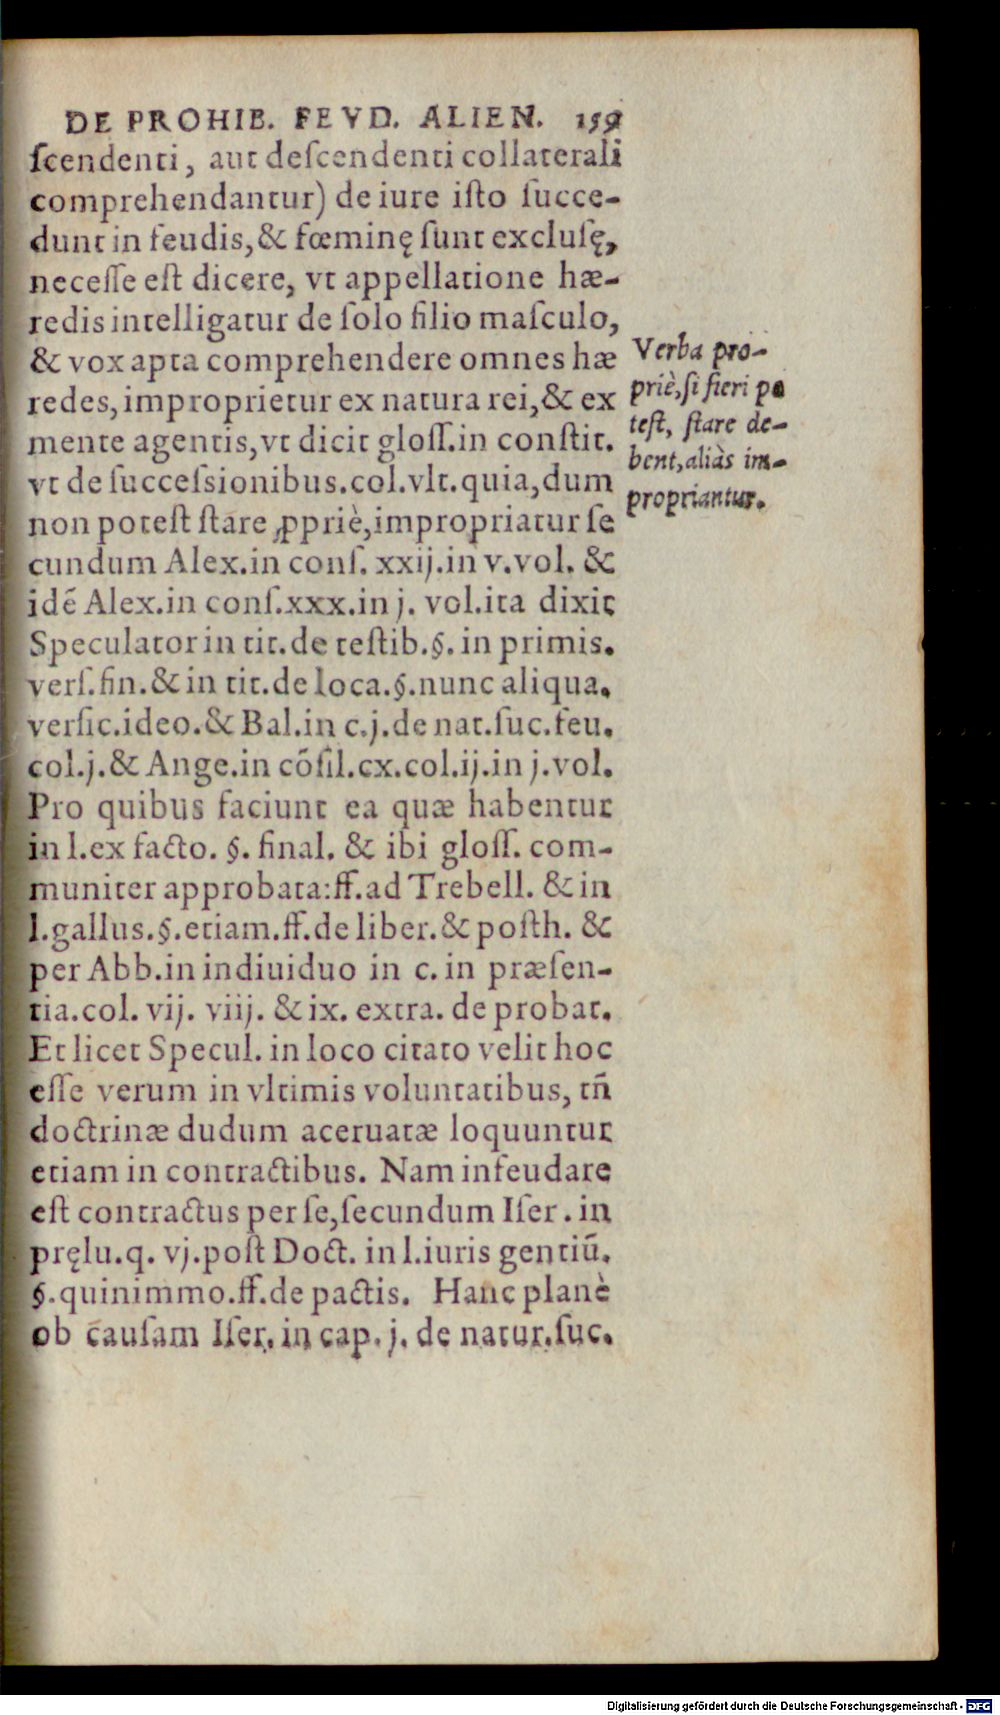 DE PROHIB. FEVD. ALIEN. 159
ſcendenti, aut deſcendenti collaterali
comprehendantur) de iure iſto ſucce-
dunt in feudis, & fœminę ſunt excluſę,
neceſſe eſt dicere, vt appellatione hæ-
redis intelligatur de ſolo filio maſculo,
& vox apta comprehendere omnes hæ
redes, improprietur ex natura rei, & ex
mente agentis, vt dicit gloſſ. in conſtit.
vt de ſucceſsionibus. col. vlt. quia, dum
non poteſt ſtare ꝓpriè, impropriatur ſe
cundum Alex. in conſ. xxij. in v. vol. &
idē Alex. in conſ. xxx. in j. vol. ita dixit
Speculator in tit. de teſtib. §. in primis.
verſ. fin. & in tit. de loca. §. nunc aliqua.
verſic. ideo. & Bal. in c. j. de nat. ſuc. feu.
col. j. & Ange. in cōſil. cx. col. ij. in j. vol.
Pro quibus faciunt ea quæ habentur
in l. ex facto. §. final. & ibi gloſſ. com-
muniter approbata: ff. ad Trebell. & in
l. gallus. §. etiam. ff. de liber. & poſth. &
per Abb. in indiuiduo in c. in præſen-
tia. col. vij. viij. & ix. extra. de probat.
Et licet Specul. in loco citato velit hoc
eſſe verum in vltimis voluntatibus, tñ
doctrinæ dudum aceruatæ loquuntur
etiam in contractibus. Nam infeudare
eſt contractus per ſe, ſecundum Iſer. in
pręlu. q. vj. poſt Doct. in l. iuris gentiū.
§. quinimmo. ff. de pactis. Hanc planè
ob cauſam Iſer. in cap. j. de natur. ſuc.
Verba pro-
priè, ſi fieri po
teſt, ſtare de-
bent, aliàs im-
propriantur.
Digitalisierung gefördert durch die Deutsche Forschungsgemeinschaft - DFG